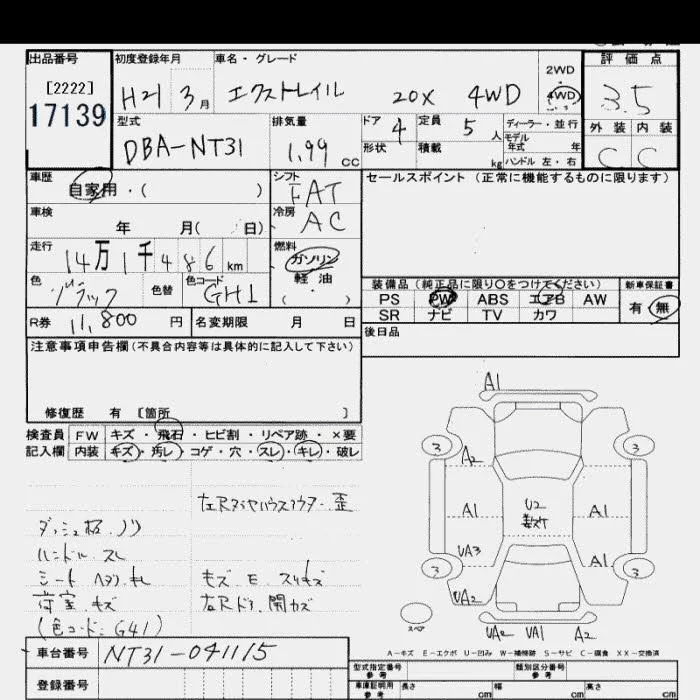 出品番号 初度登録年月 車名・グレード 2WD 評価点
[2222]
17139
H21 3月 エクストレイル 20X 4WD 4WD 3.5
型式 排気量 ドア 4 定員 5人 ディーラー・並行 外装 内装
DBA-NT31 1.99cc 形状 積載 kg モデル年式 年 C C
ハンドル 左・右
車歴 シフト セールスポイント(正常に機能するものに限ります)
自家用・( ) FAT
車検 冷房
年 月( 日) AC
走行 燃料
14万1千486km ガソリン
色 色替 色コード 軽油
ブラック GH1 ( )
装備品(純正品に限り○をつけてください) 新車保証書
PS PW ABS エアB AW 有・無
SR ナビ TV カワ
R券 11,800円 名変期限 月 日
後日品
注意事項申告欄(不具合内容等は具体的に記入して下さい)
修復歴 有 [箇所 ]
検査員 FW キズ・飛石・ヒビ割・リペア跡・×要
記入欄 内装 キズ・汚レ・コゲ・穴・スレ・キレ・破レ
A1
3 3
A2
A1 U2 A1
UA3 A1
3 3
UA2
スペア
UA2 UA1 A2
左Rタイヤハウスアウター歪
ハンドル.スレ
荷室.キズ
(色コード:G41)
A-キズ E-エクボ U-凹み W-補修跡 S-サビ C-腐食 XX-交換済
車台番号 NT31-041115
登録番号
型式指定番号 参考 類別区分番号 参考
車庫証明用 参考 長さ cm 幅 cm 高さ cm